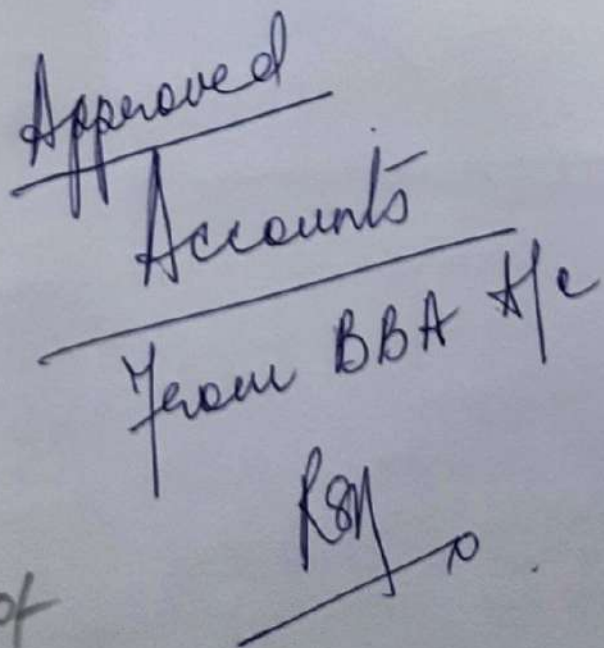 Approved
Accounts
From BBA A/c
of